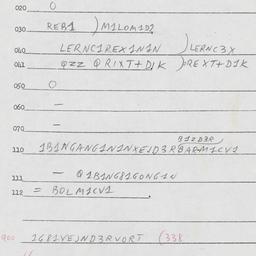 020 O
030 REB1 ) M1LOM1D2
040 LERNC1REX1N1N ) LERNC3X
041 QZZ QR1XT+D1K ) REXT+D1K
050 O
060 —
070 —
B1ZD3R
110 1B1NGANG1N1NXEJD3RBARM1CV1
111 — Q1B1NG81GONG1N
112 = BOLM1CV1.
900 1G81VEJND3RVORT (338